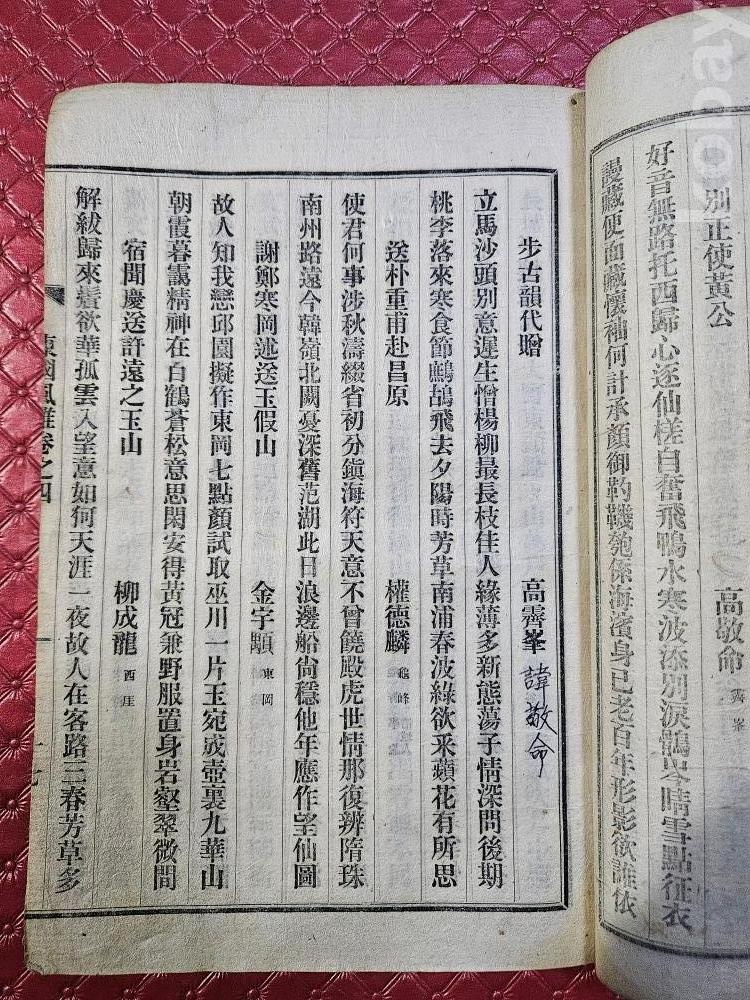 別正使黃公 高敬命 霽峯
好音無路托西歸心逐仙槎自奮飛鴨水寒波添別淚鶻岑晴雪點征衣
謾藏便面藏懷袖何計承顔御靮鞿匏係海濱身已老百年形影欲誰依
步古韻代贈 高霽峯 諱敬命
立馬沙頭別意遲生憎楊柳最長枝佳人緣薄多新態蕩子情深問後期
桃李落來寒食節鷓鴣飛去夕陽時芳草南浦春波綠欲采蘋花有所思
送朴重甫赴昌原 權德麟 龜峰
使君何事涉秋濤綴省初分鎮海符天意不曾饒殿虎世情那復辨隋珠
南州路遠今韓嶺北闕憂深舊范湖此日浪邊船尙穩他年應作望仙圖
謝鄭寒岡述送玉假山 金宇顒 東岡
故人知我戀邱園擬作東岡七點顏試取巫川一片玉宛成壺裏九華山
朝霞暮靄精神在白鶴蒼松意思閑安得黃冠兼野服置身岩壑翠微間
宿聞慶送許遠之玉山 柳成龍 西厓
解紱歸來鬢欲華孤雲入望意如何天涯一夜故人在客路三春芳草多
東國風雅卷之四 十七
kobay